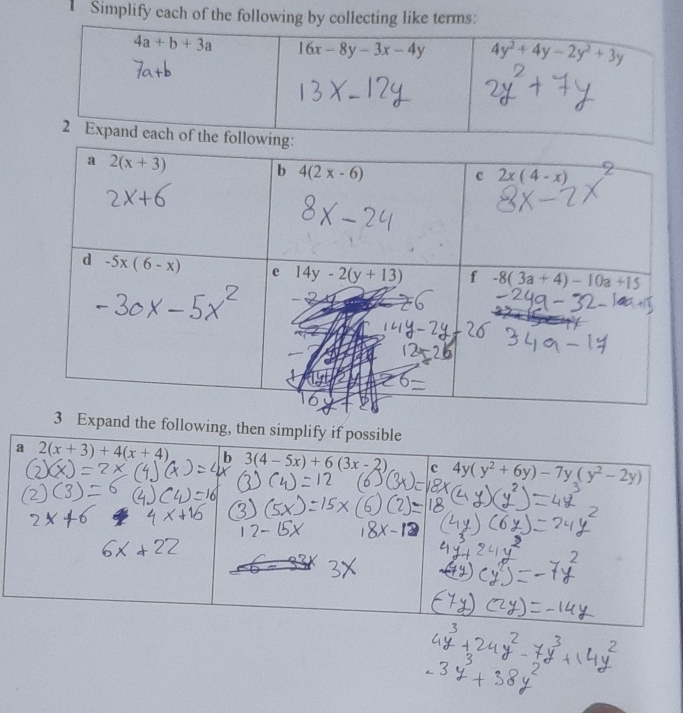 1 Simplify each of the following by collecting like terms:
4a + b + 3a
16x – 8y – 3x – 4y
4y² + 4y – 2y² + 3y
7a+b
13x-12y
2y² + 7y
2 Expand each of the following:
a 2(x + 3)
b 4(2 x - 6)
c 2x ( 4 - x)
2x+6
8x-24
8x-2x²
d -5x ( 6 - x)
e 14y - 2(y + 13)
f -8( 3a + 4) – 10a +15
-30x-5x²
14y-2y-26
-24a-32-10a+15
34a-17
3 Expand the following, then simplify if possible
a 2(x + 3) + 4(x + 4)
b 3(4 – 5x) + 6 (3x - 2)
c 4y( y² + 6y) – 7y ( y² – 2y)
(2)(x)=2x (4)(x)=4x
(2)(3)=6 (4)(4)=16
2x+6 4x+16
6x+22
(3)(4)=12 (6)(3x)=18x
(3)(5x)=15x (6)(2)=18
12-15x 18x-12
3x
(4y)(y²)=4y³
(4y)(6y)=24y²
4y³+24y²
(y²)=-7y²
(-7y)(2y)=-14y
4y³+24y²-7y³+14y²
-3y³+38y²